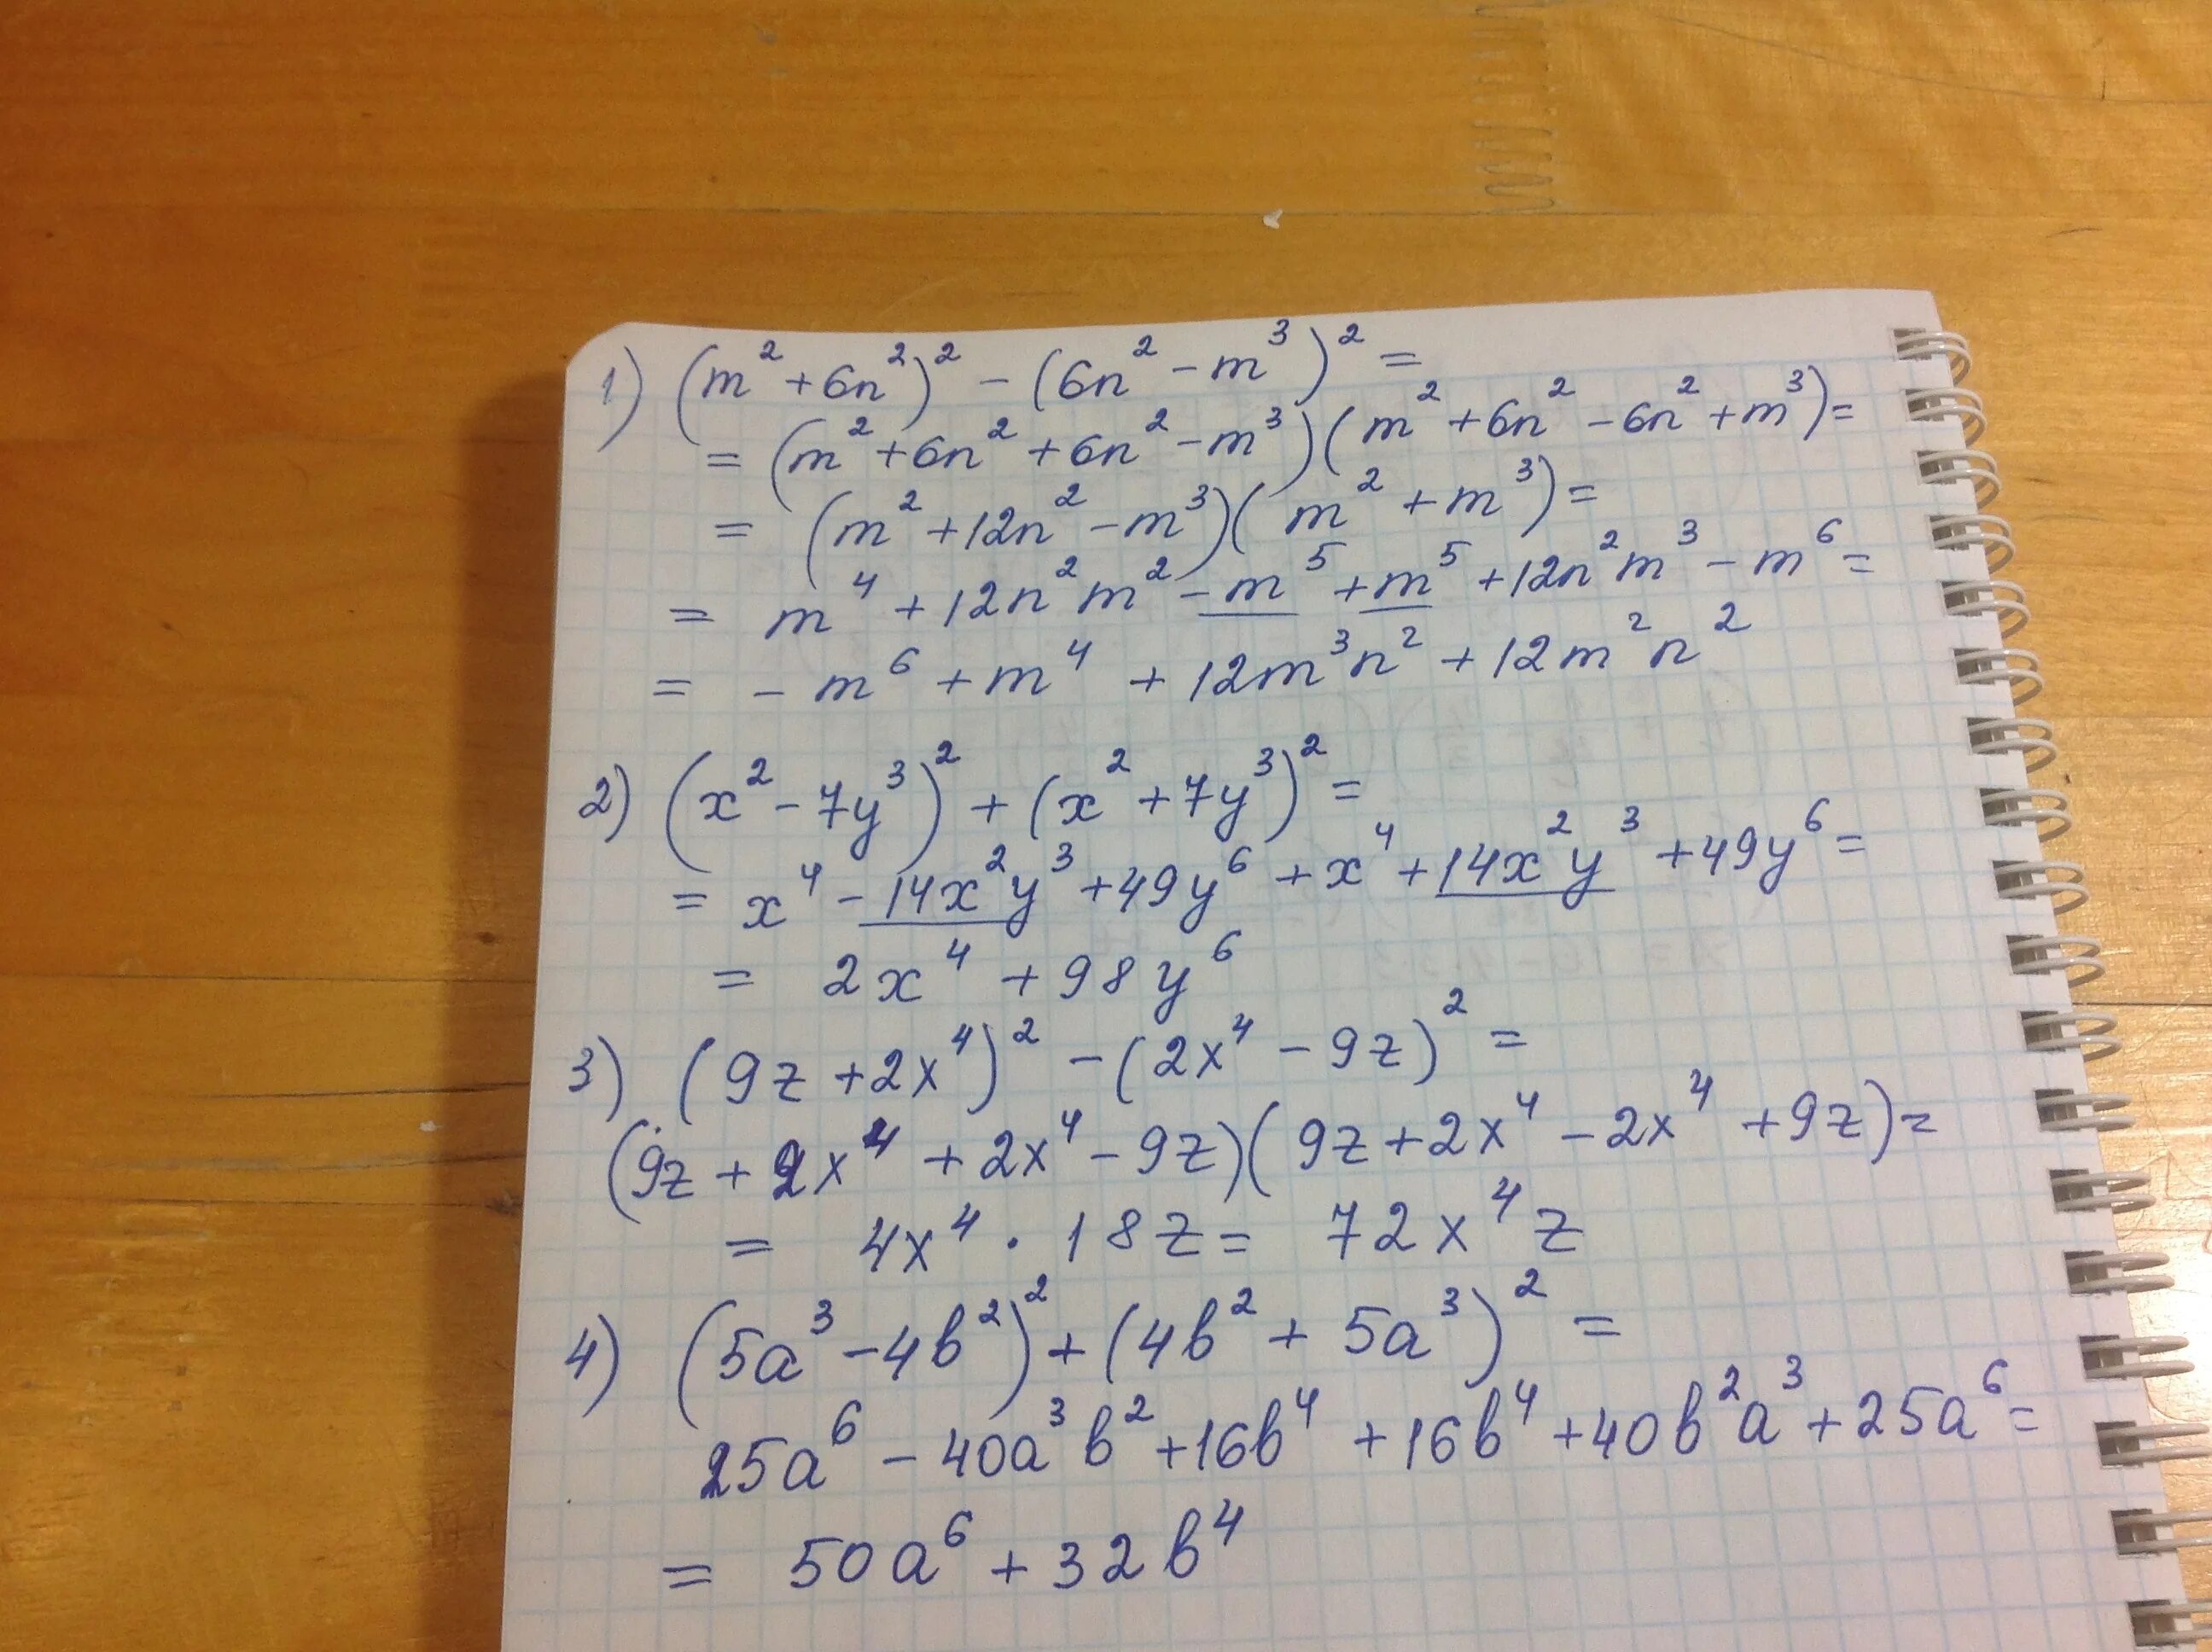 1) (m² + 6n²)² - (6n² - m³)² =
= (m² + 6n² + 6n² - m³)(m² + 6n² - 6n² + m³) =
= (m² + 12n² - m³)(m² + m³) =
= m⁴ + 12n²m² - m⁵ + m⁵ + 12n²m³ - m⁶ =
= - m⁶ + m⁴ + 12m³n² + 12m²n²
2) (x² - 7y³)² + (x² + 7y³)² =
= x⁴ - 14x²y³ + 49y⁶ + x⁴ + 14x²y³ + 49y⁶ =
= 2x⁴ + 98y⁶
3) (9z + 2x⁴)² - (2x⁴ - 9z)² =
(9z + 2x⁴ + 2x⁴ - 9z)(9z + 2x⁴ - 2x⁴ + 9z) =
= 4x⁴ · 18z = 72x⁴z
4) (5a³ - 4b²)² + (4b² + 5a³)² =
25a⁶ - 40a³b² + 16b⁴ + 16b⁴ + 40b²a³ + 25a⁶ =
= 50a⁶ + 32b⁴